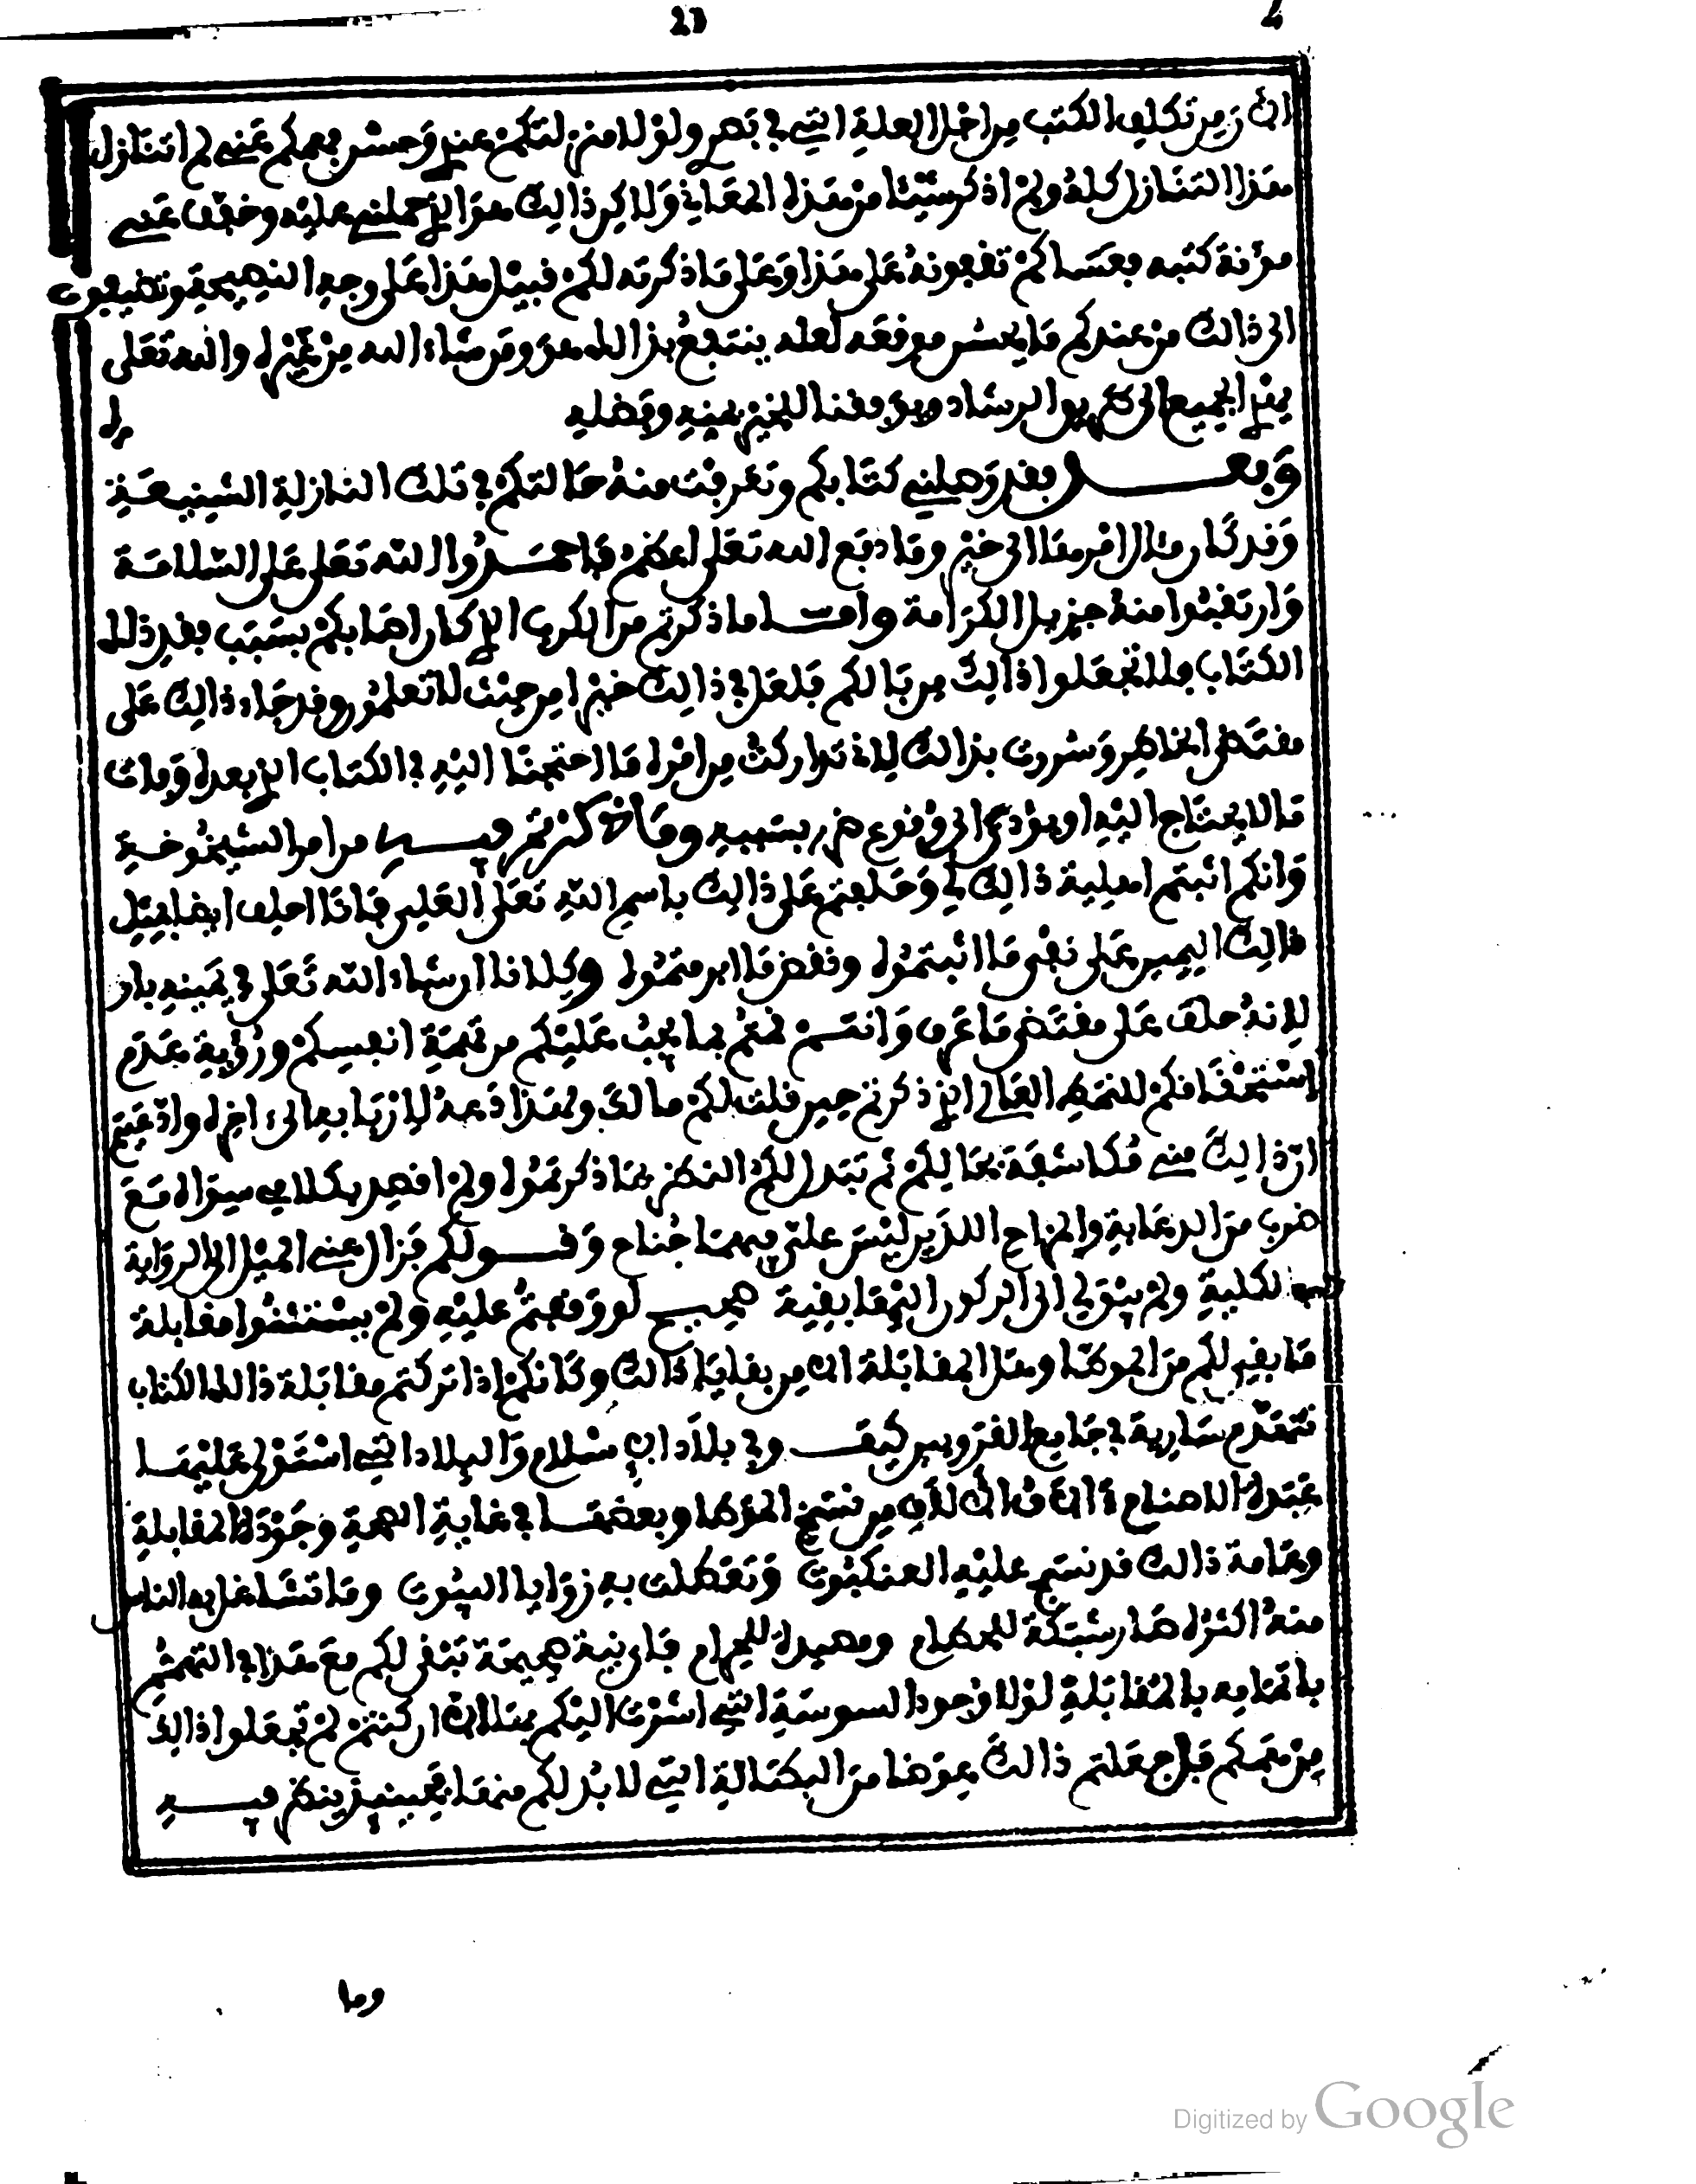 23
الان زمن تكلف الكتب من اجل العلة التي في بصري ولولا منزلتكم عندي وحسن فهمكم عني لم اتنازل
هذا التنازل كله ولم اذكر شيئا من هذه المعاني ولاكن ذالك هو الذي حملني عليه وخفف عني
مؤنة كتبه فعساكم تفعونه على هذا وعلى ما ذكرته لكم قبيل هذا على وجه النصيحة وتضيفون
الى ذالك من عندكم ما يحسن موقعه لعله ينتفع بذالك هو ومن شاء الله من غيره والله تعلى
يهدي الجميع الى طريق الرشاد ويوفقنا للخير بمنه وفضله
وبعد فقد وصلني كتابكم وتعرفت منه حالتكم في تلك النازلة الشنيعة
وقد كان مئال امرها الى خير وما دفع الله تعلى اعظم فاحمدوا الله تعلى على السلامة
وارتقبوا منه جزيل الكرامة واما ما ذكرتم من الكرب الذي كان اصابكم بسبب فقد ذلك
الكتاب فلا تجعلوا ذالك من بالكم فلعل في ذالك خيرا من حيث لا تعلمون وقد جاء ذالك على
مقتضى الخاطر وسررت بذالك لاني تداركت من امره ما احتجنا اليه في الكتاب الذي بعده وفات
ما لا يحتاج اليه او يؤدي الى وقوع ضرر بسببه وما ذكرتم فيه من امر الشيخوخية
وانكم اثبتم اهلية ذالك لي وحلفتم على ذالك باسم الله تعلى العلي فانا احلف ايضا بمثل
ذالك اليمين على نفي ما اثبتموه ونقض ما ابرمتموه وكلانا ان شاء الله تعلى في يمينه بار
لانه حلف على مقتضى ما عرف وانتم قمتم بما يجب عليكم من تهمة انفسكم ورؤية عدم
استحقاقكم للنمط العالي الذي ذكرتم حين قلت لكم ما لك ولهذا دعه لاربابه الى اخره وادعيتم
ان ذالك مني مكاشفة بحالكم ثم تبدل لكم النظر بما ذكرتموه ولم اقصد بكلامي سواه مع
ضرب من الدعابة والمزاح اللذين ليس علي فيهما جناح وقولكم فزال عني الميل الى الرواية
بالكلية ولم يبق لي الى الركون اليها بقية صحيح لو وقفتم عليه ولم يستثنوا مقابلة
ما بقي لكم من الموطا وهل المقابلة الا من بقايا ذالك وكانكم اذا تركتم مقابلة ذالك الكتاب
تتهدم سارية في جامع القرويين كيف وفي بلاد الاسلام والبلاد التي استولى عليها
عبدة الاصنام ءالاف الاف من نسخ الموطا وبعضها في غاية الصحة وجودة المقابلة
وعامة ذالك قد نسج عليه العنكبوت وتعطلت به زوايا البيوت وما تشاغل به الناس
منه اكثره صار شبكة للحطام ومصيدة للحرام فاي نية صحيحة تبقى لكم مع هذا في التهمم
باتمامه بالمقابلة لولا وجود السوسة التي اشرت اليكم بها الان ان كنتم لم تجعلوا ذالك
من همكم فهل جعلتم ذالك عوضا من البطالة التي لا بد لكم منها فحينئذ ينظر فيه
وما
Digitized by Google